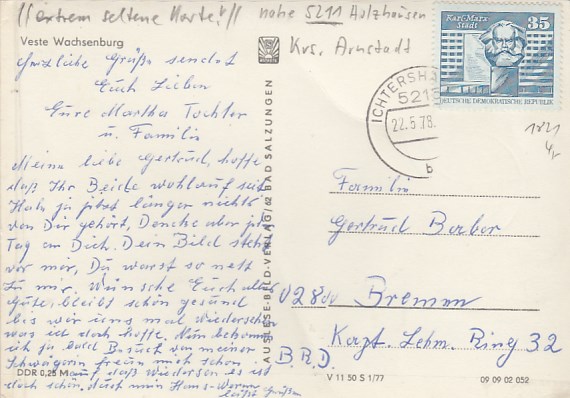 //extrem seltene Karte!// nahe 5211 Holzhausen
Krs. Arnstadt
Veste Wachsenburg
Herzliche Grüße sendet
Euch Lieben
Eure Martha Tochter
u. Familie
Meine liebe Gertrud, hoffe
daß Ihr Beide wohlauf seit
Habe ja jetzt länger nichts
von Dir gehört, Denke aber jed.
Tag an Dich. Dein Bild steht
vor mir, Du warst so nett
zu mir. Wünsche Euch alles
Gute, bleibt schön gesund
bis wir uns mal wiedersehn
was ich doch hoffe. Nun bekomme
ich ja bald Besuch von meiner
Schwägerin freue mich schon
auf daß wiedersehn es ist
doch schön, durch mein Hans-Werner
laßt Grüßen
DDR 0,25 M
AUSLESE-BILD-VERLAG 62 BAD SALZUNGEN
Karl-Marx-Stadt 35
DEUTSCHE DEMOKRATISCHE REPUBLIK
ICHTERSH
521
22.5.78.
b
Familie
Gertrud Barber
02800 Bremen
Kapt. Lehm. Ring 32
B.R.D.
V 11 50 S 1/77
09 09 02 052